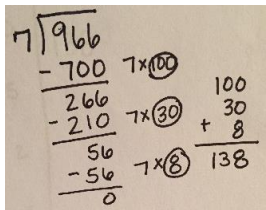 7)966
- 700 7×100
266
- 210 7×30
56
- 56 7×8
0
100
30
+ 8
138